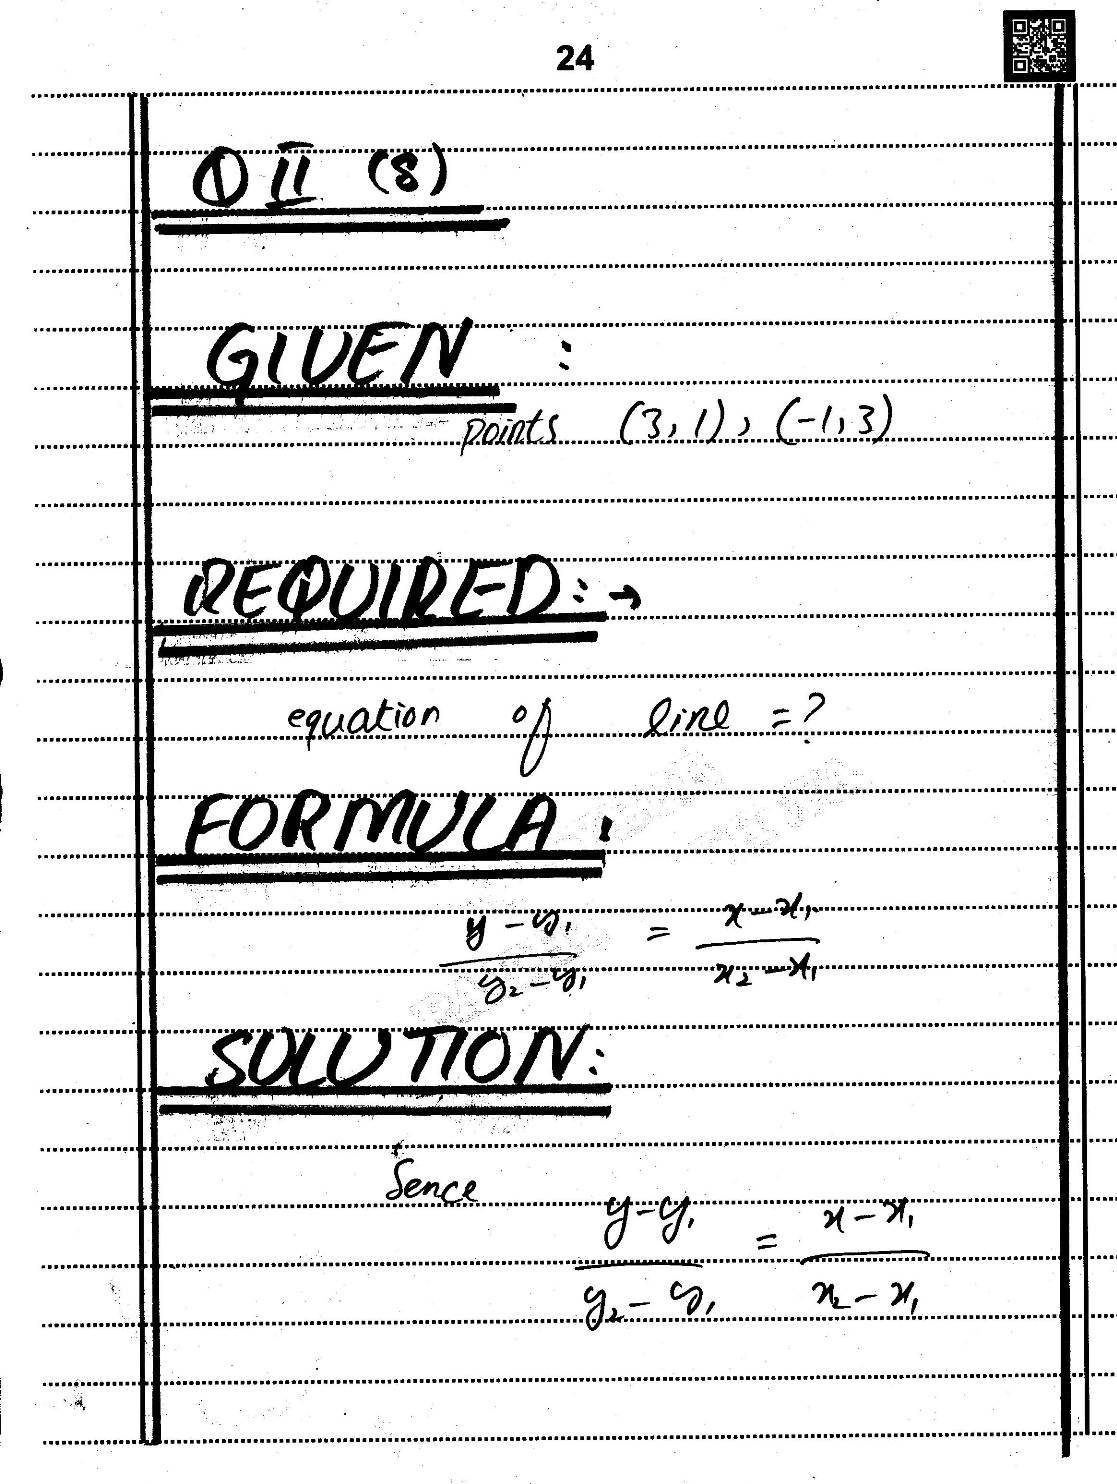 24
Q II (8)
GIVEN :
points (3,1), (-1,3)
REQUIRED:→
equation of line =?
FORMULA :
y-y₁/y₂-y₁ = x-x₁/x₂-x₁
SOLUTION:
Sence
y-y₁/y₂-y₁ = x-x₁/x₂-x₁